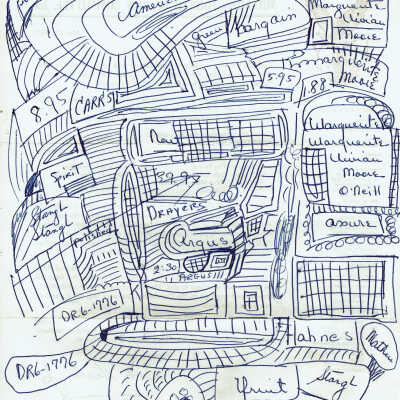 America
Marguerite
Vivian
Moore
green
Bargain
Marguerite
Moore
5.95
1.88
8.95
CARRS
Marguerite
Marguerite
Vivian
Moore
O'Neill
New
Spirit
39.95
DRAPERS
Stangl
Stangl
polished
Argus
assure
2:30
ARGUS
DR.6-1776
DR6-1776
Hahnes
Stangl